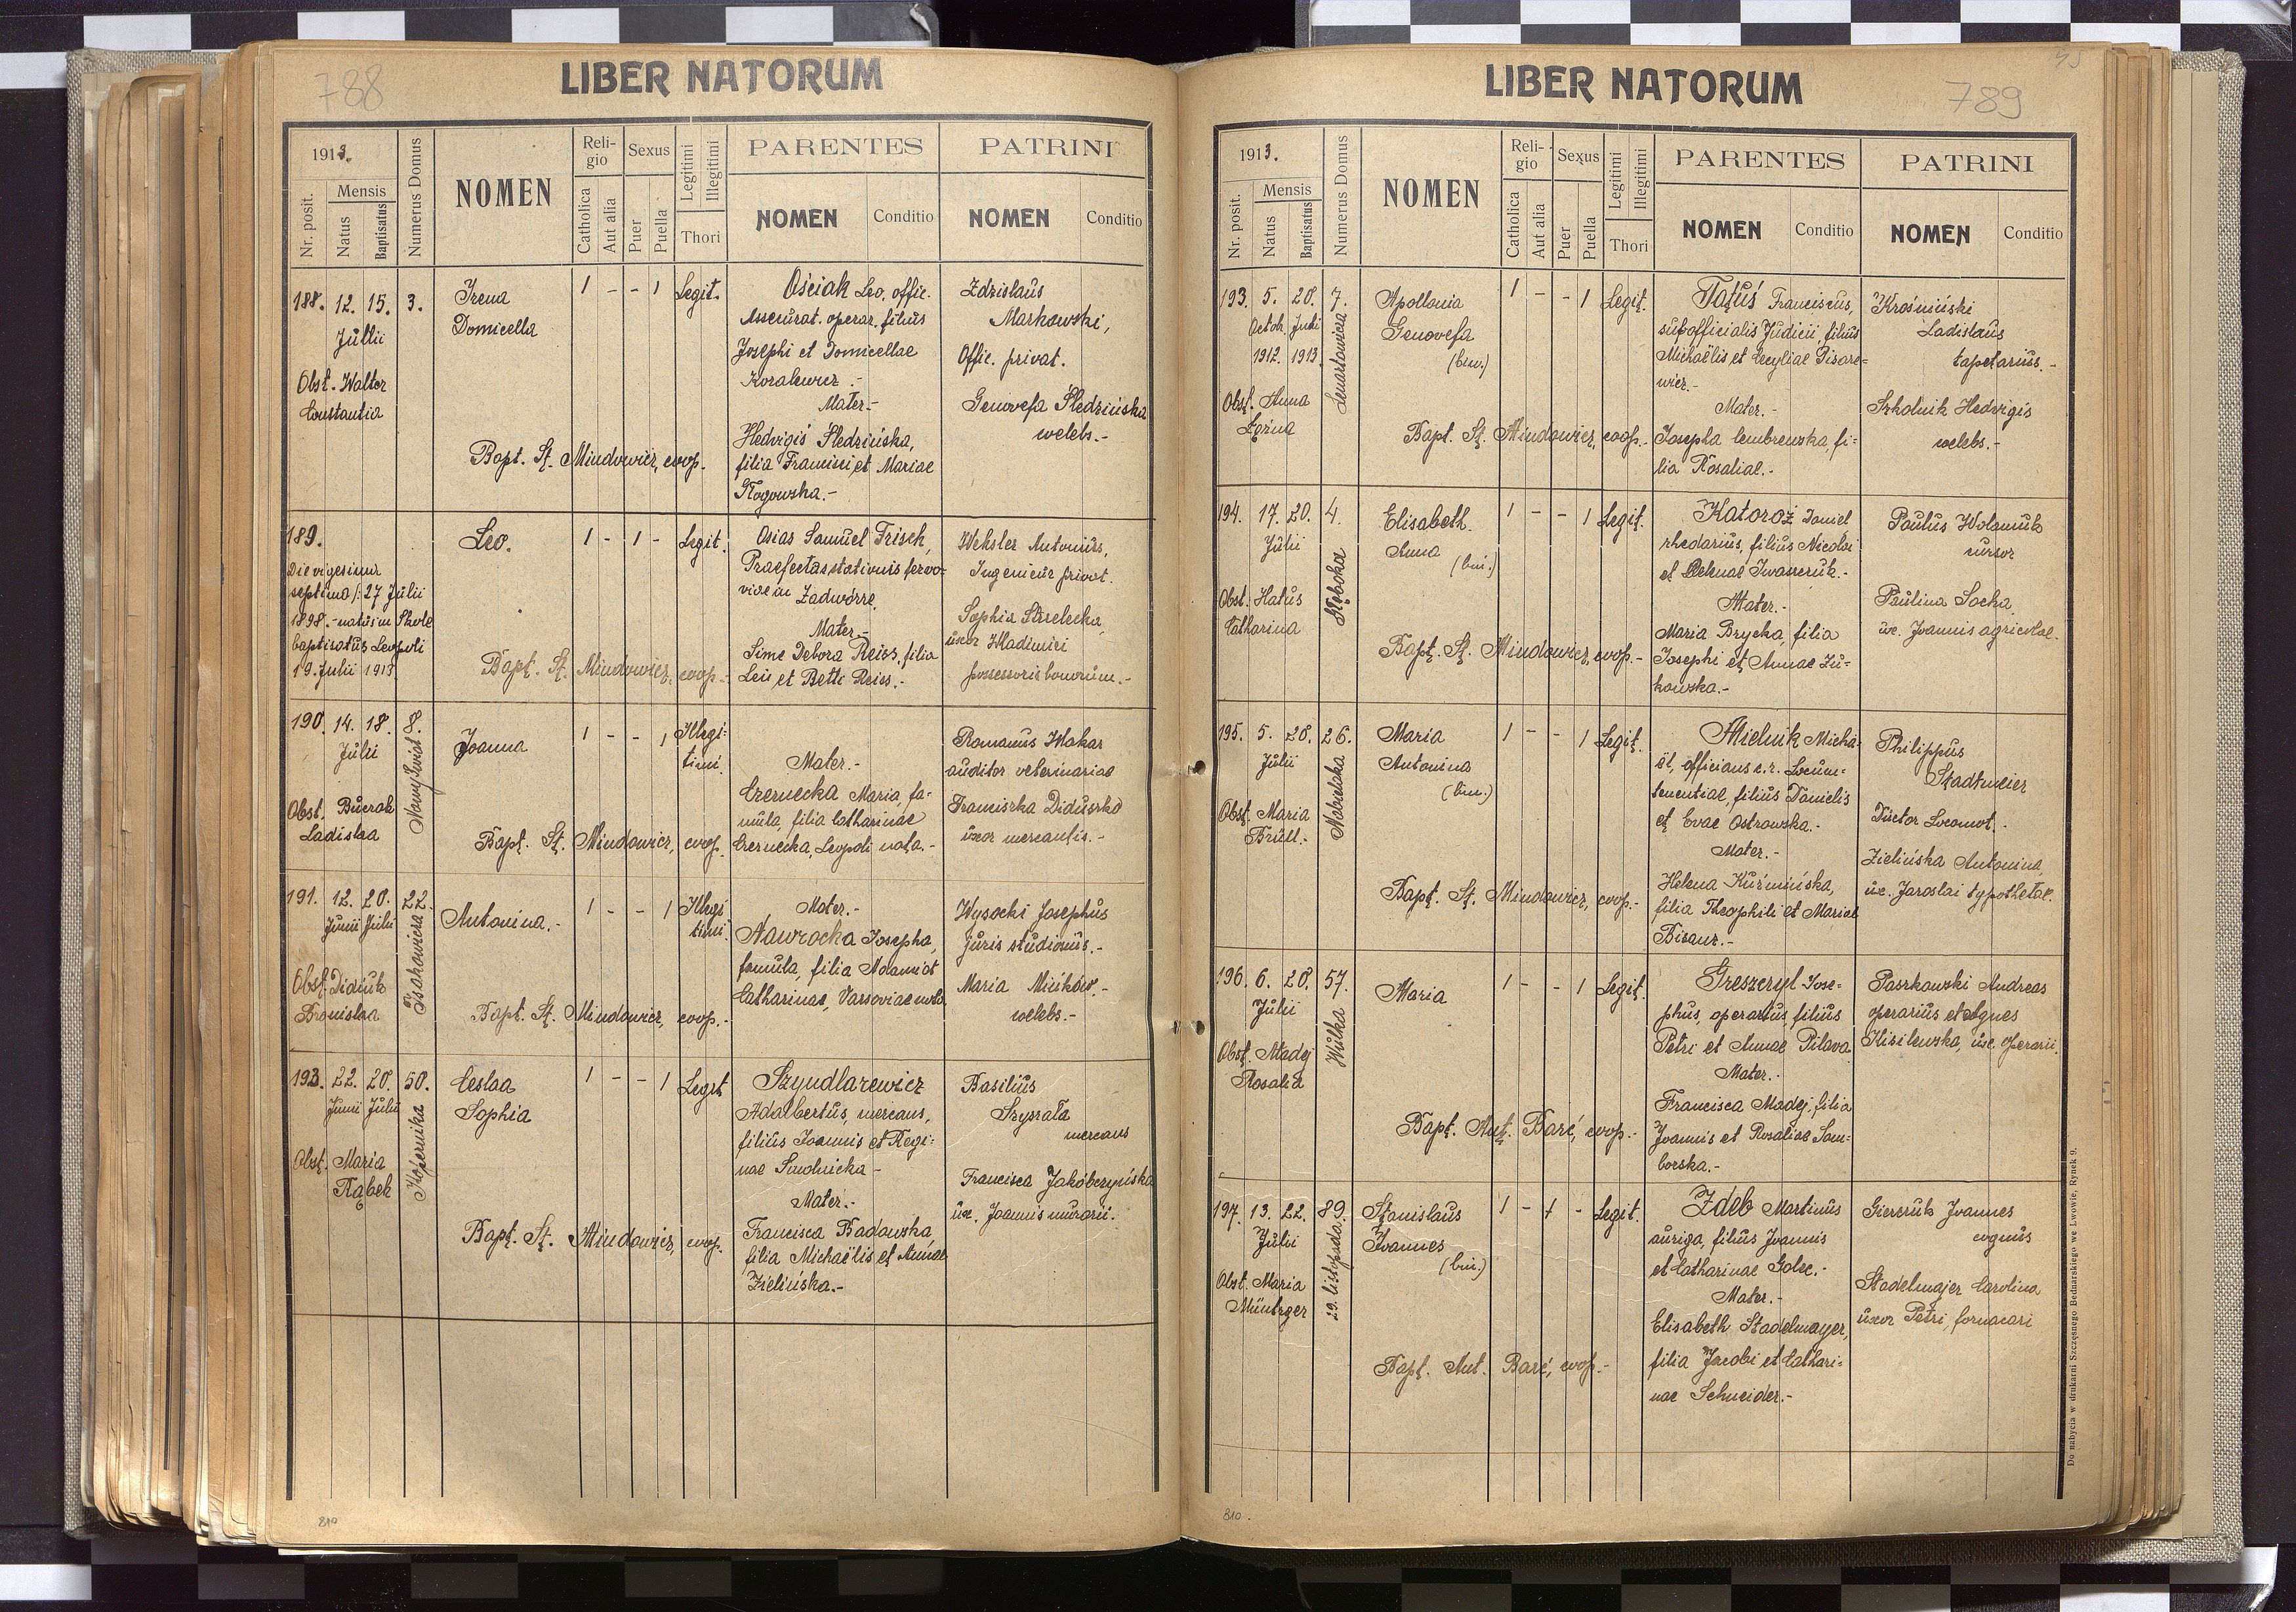 788
LIBER NATORUM
1913.
Nr. posit.
Mensis
Natus
Baptisatus
Numerus Domus
NOMEN
Religio
Catholica
Aut alia
Sexus
Puer
Puella
Legitimi
Illegitimi
Thori
PARENTES
NOMEN
Conditio
PATRINI
NOMEN
Conditio
188. 12. 15. 3.
Julii
Obst. Walter
Constantia
Irena
Domicella
1 - - 1 Legit.
Bapt. St. Mindowicz, coop.
Ościak Leo, offic.
Assecurat. operar. filius
Josephi et Domicellae
Kozakewicz.-
Mater.-
Hedvigis Śledzińska,
filia Francisci et Mariae
Głogowska.-
Zdzislaus
Markowski,
Offic. privat.
Genovefa Śledzińska
coelebs.-
189.
Die vigesima
septima /: 27 Julii
1898.- natus in Skole
baptisatus Leopoli
19. Julii 1913.
Leo.
1 - 1 - Legit.
Bapt. St. Mindowicz, coop.-
Osias Samuel Frisch,
Praefectus stationis ferro-
viae in Zadwórze.
Mater.-
Sime Debora Reiss, filia
Leii et Betti Reiss.-
Weksler Antonius,
Ingenieur privat.
Sophia Strzelecka,
uxor Wladimiri
possessoris bonorum.-
190. 14. 18. 8.
Julii
Nowy Świat
Obst. Buczak
Ladislaa
Joanna
1 - - 1 Illegi-
timi.
Bapt. St. Mindowicz, coop.
Mater.-
Czernecka Maria, fa-
mula, filia Catharinae
Czernecka, Leopoli nata.-
Romanus Wakar
auditor veterinariae
Franciszka Diduszko
uxor mercantis.-
191. 12. 20. 22.
Junii Julii
Issakowicza
Obst. Didiuk
Bronislaa
Antonina.-
1 - - 1 Illegi
timi.
Bapt. St. Mindowicz, coop.-
Mater.-
Nawrocka Josepha,
famula, filia Adami et
Catharinae, Varsoviae nata.
Wysocki Josephus
juris studiosus.-
Maria Mińków.-
coelebs.-
192. 22. 20. 50.
Junii Julii
Kopernika
Obst. Maria
Rąbek
Ceslaa
Sophia
1 - - 1 Legit
Bapt. St. Mindowicz, coop.
Szyndlarewicz
Adalbertus, mercans,
filius Joannis et Regi-
nae Smolnicka -
Mater.-
Francisca Badowska,
filia Michaëlis et Annae
Zielińska.-
Basilius
Szyszała
mercans
Francisca Jakóbczyńska
ux. Joannis murarii.
810
45
789
LIBER NATORUM
1913.
Nr. posit.
Mensis
Natus
Baptisatus
Numerus Domus
NOMEN
Religio
Catholica
Aut alia
Sexus
Puer
Puella
Legitimi
Illegitimi
Thori
PARENTES
NOMEN
Conditio
PATRINI
NOMEN
Conditio
193. 5. 20. 7.
Octob. Juli
1912. 1913.
Lenartowicza
Obst. Anna
Łozina
Apollonia
Genovefa
(bin.)
1 - - 1 Legit.
Bapt. St. Mindowicz, coop.-
Tatuś Franciscus,
supofficialis Judicii, filius
Michaëlis et Cecyliae Pisare-
wicz.-
Mater.-
Josepha Cembrewska, fi-
lia Rosaliae.-
Krośniński
Ladislaus
tapetarius.-
Szkolnik Hedvigis
coelebs.-
194. 17. 20. 4.
Julii
Kłęboka
Obst. Hatus
Catharina
Elisabeth.
Anna
(bin.)
1 - - 1 Legit.
Bapt. St. Mindowicz, coop.-
Katoroż Daniel
rhedarius, filius Nicolai
et Helenae Iwaszczuk.-
Mater.-
Maria Brycka, filia
Josephi et Annae Żu-
kowska.-
Paulus Wolaniuk
cursor
Paulina Socha,
ux. Joannis agricolae.
195. 5. 20. 26.
Julii
Nabielaka
Obst. Maria
Brüll.-
Maria
Antonina
(bin.)
1 - - 1 Legit.
Bapt. St. Mindowicz, coop.-
Mielnik Micha-
ël, officians c.r. Locum-
tenentiae, filius Danielis
et Evae Ostrowska.-
Mater.-
Helena Kuźmińska,
filia Theophili et Mariae
Bisanz.-
Philippus
Stadtmeier
Ductor Locomot.-
Zielińska Antonina,
ux. Jaroslai typothetae.
196. 6. 20. 57.
Julii
Wulka
Obst. Madej
Rosalia
Maria
1 - - 1 Legit.
Bapt. Ant. Baré, coop.-
Greszeryl Jose-
phus, operarius, filius
Petri et Annae Pilava
Mater.-
Francisca Madej, filia
Joannis et Rosaliae Sam-
borska.-
Paszkowski Andreas
operarius et Agnes
Kisilewska, ux. operarii.
197. 13. 22. 89.
Julii
29. listopada
Obst. Maria
Müntzger
Stanislaus
Joannes
(bin.)
1 - 1 - Legit.
Bapt. Ant. Baré, coop.-
Zdeb Martinus
auriga, filius Joannis
et Catharinae Golec.-
Mater.-
Elisabeth Stadelmayer,
filia Jacobi et Cathari-
nae Schneider.-
Gierczuk Joannes
coquus
Stadelmajer Carolina
uxor Petri, fornacari
Do nabycia w drukarni Szczęsnego Bednarskiego we Lwowie, Rynek 9.
810.